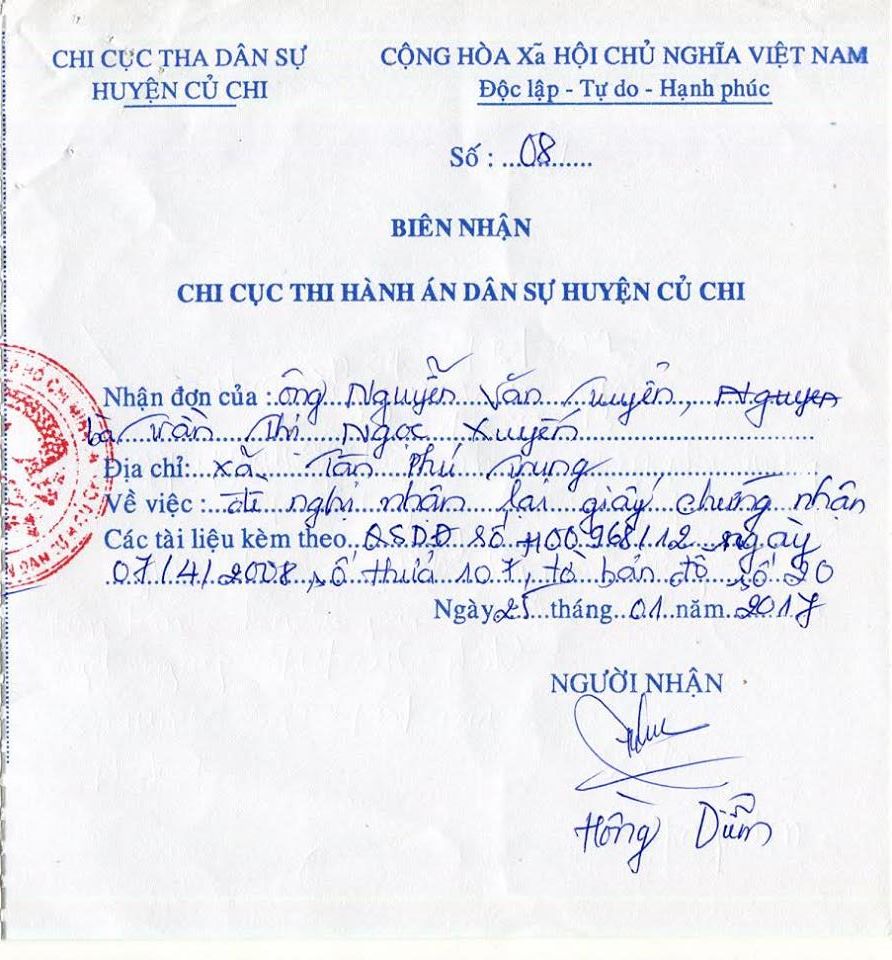 CHI CỤC THA DÂN SỰ
HUYỆN CỦ CHI
CỘNG HÒA Xã HỘI CHỦ NGHĨA VIỆT NAM
Độc lập - Tự do - Hạnh phúc
Số : ...08.......
BIÊN NHẬN
CHI CỤC THI HÀNH ÁN DÂN SỰ HUYỆN CỦ CHI
Nhận đơn của : ông Nguyễn Văn Tuyên, Nguyen
bà Trần Thị Ngọc Xuyến
Địa chỉ: xã Tân Phú Trung
Về việc : đề nghị nhận lại giấy chứng nhận
Các tài liệu kèm theo QSDĐ số H00968/12 ngày
07/4/2008, số thửa 107, tờ bản đồ số 20
Ngày 25 tháng 01 năm 2017
NGƯỜI NHẬN
Hồng Diễm